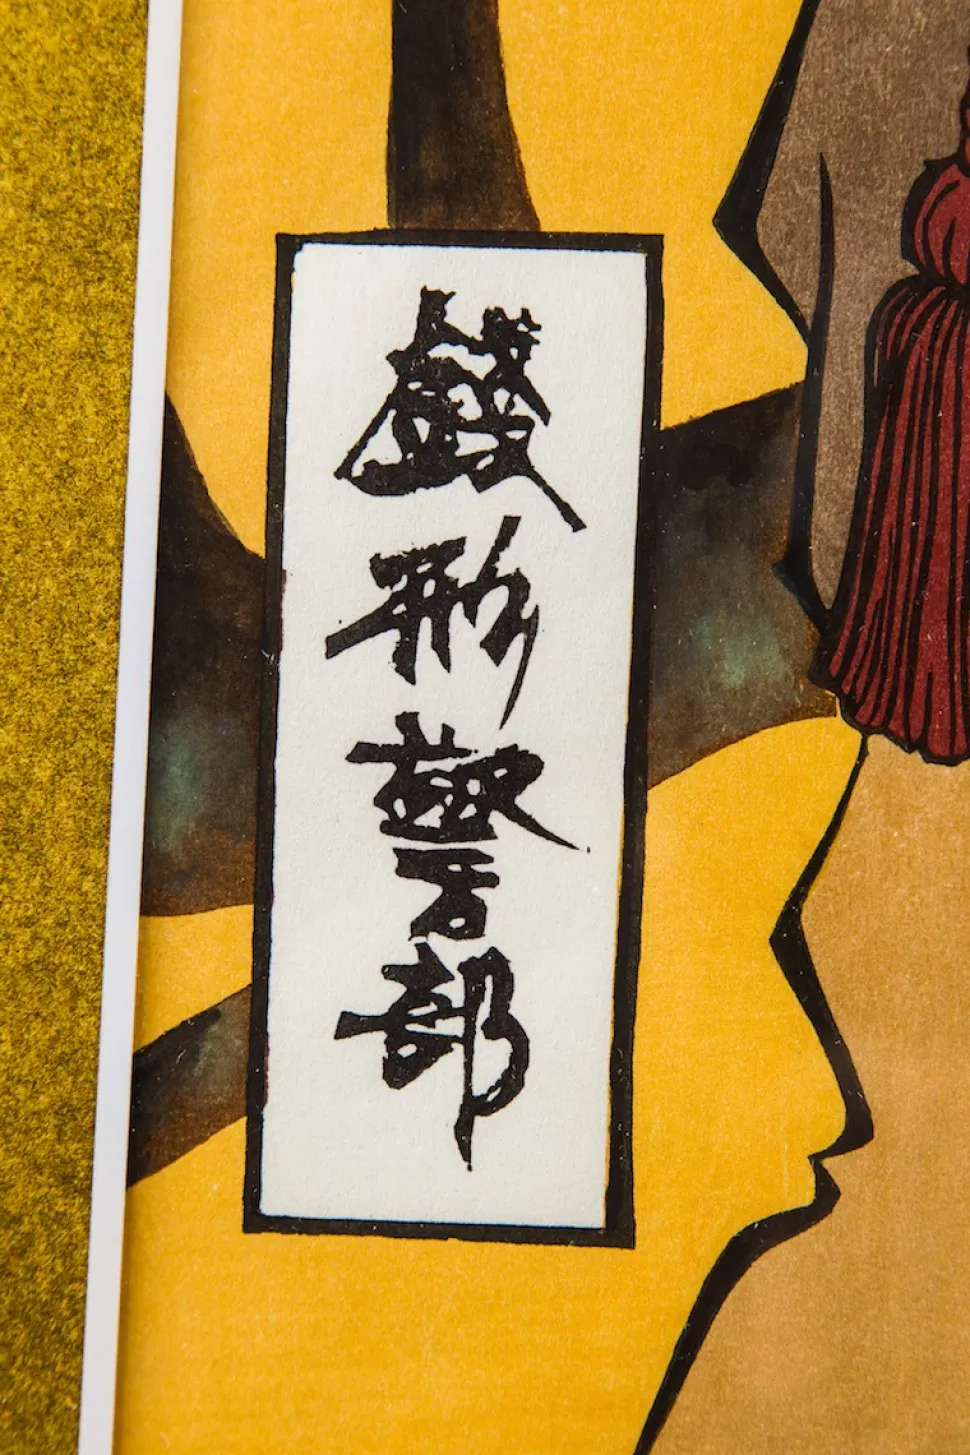 銭形警部